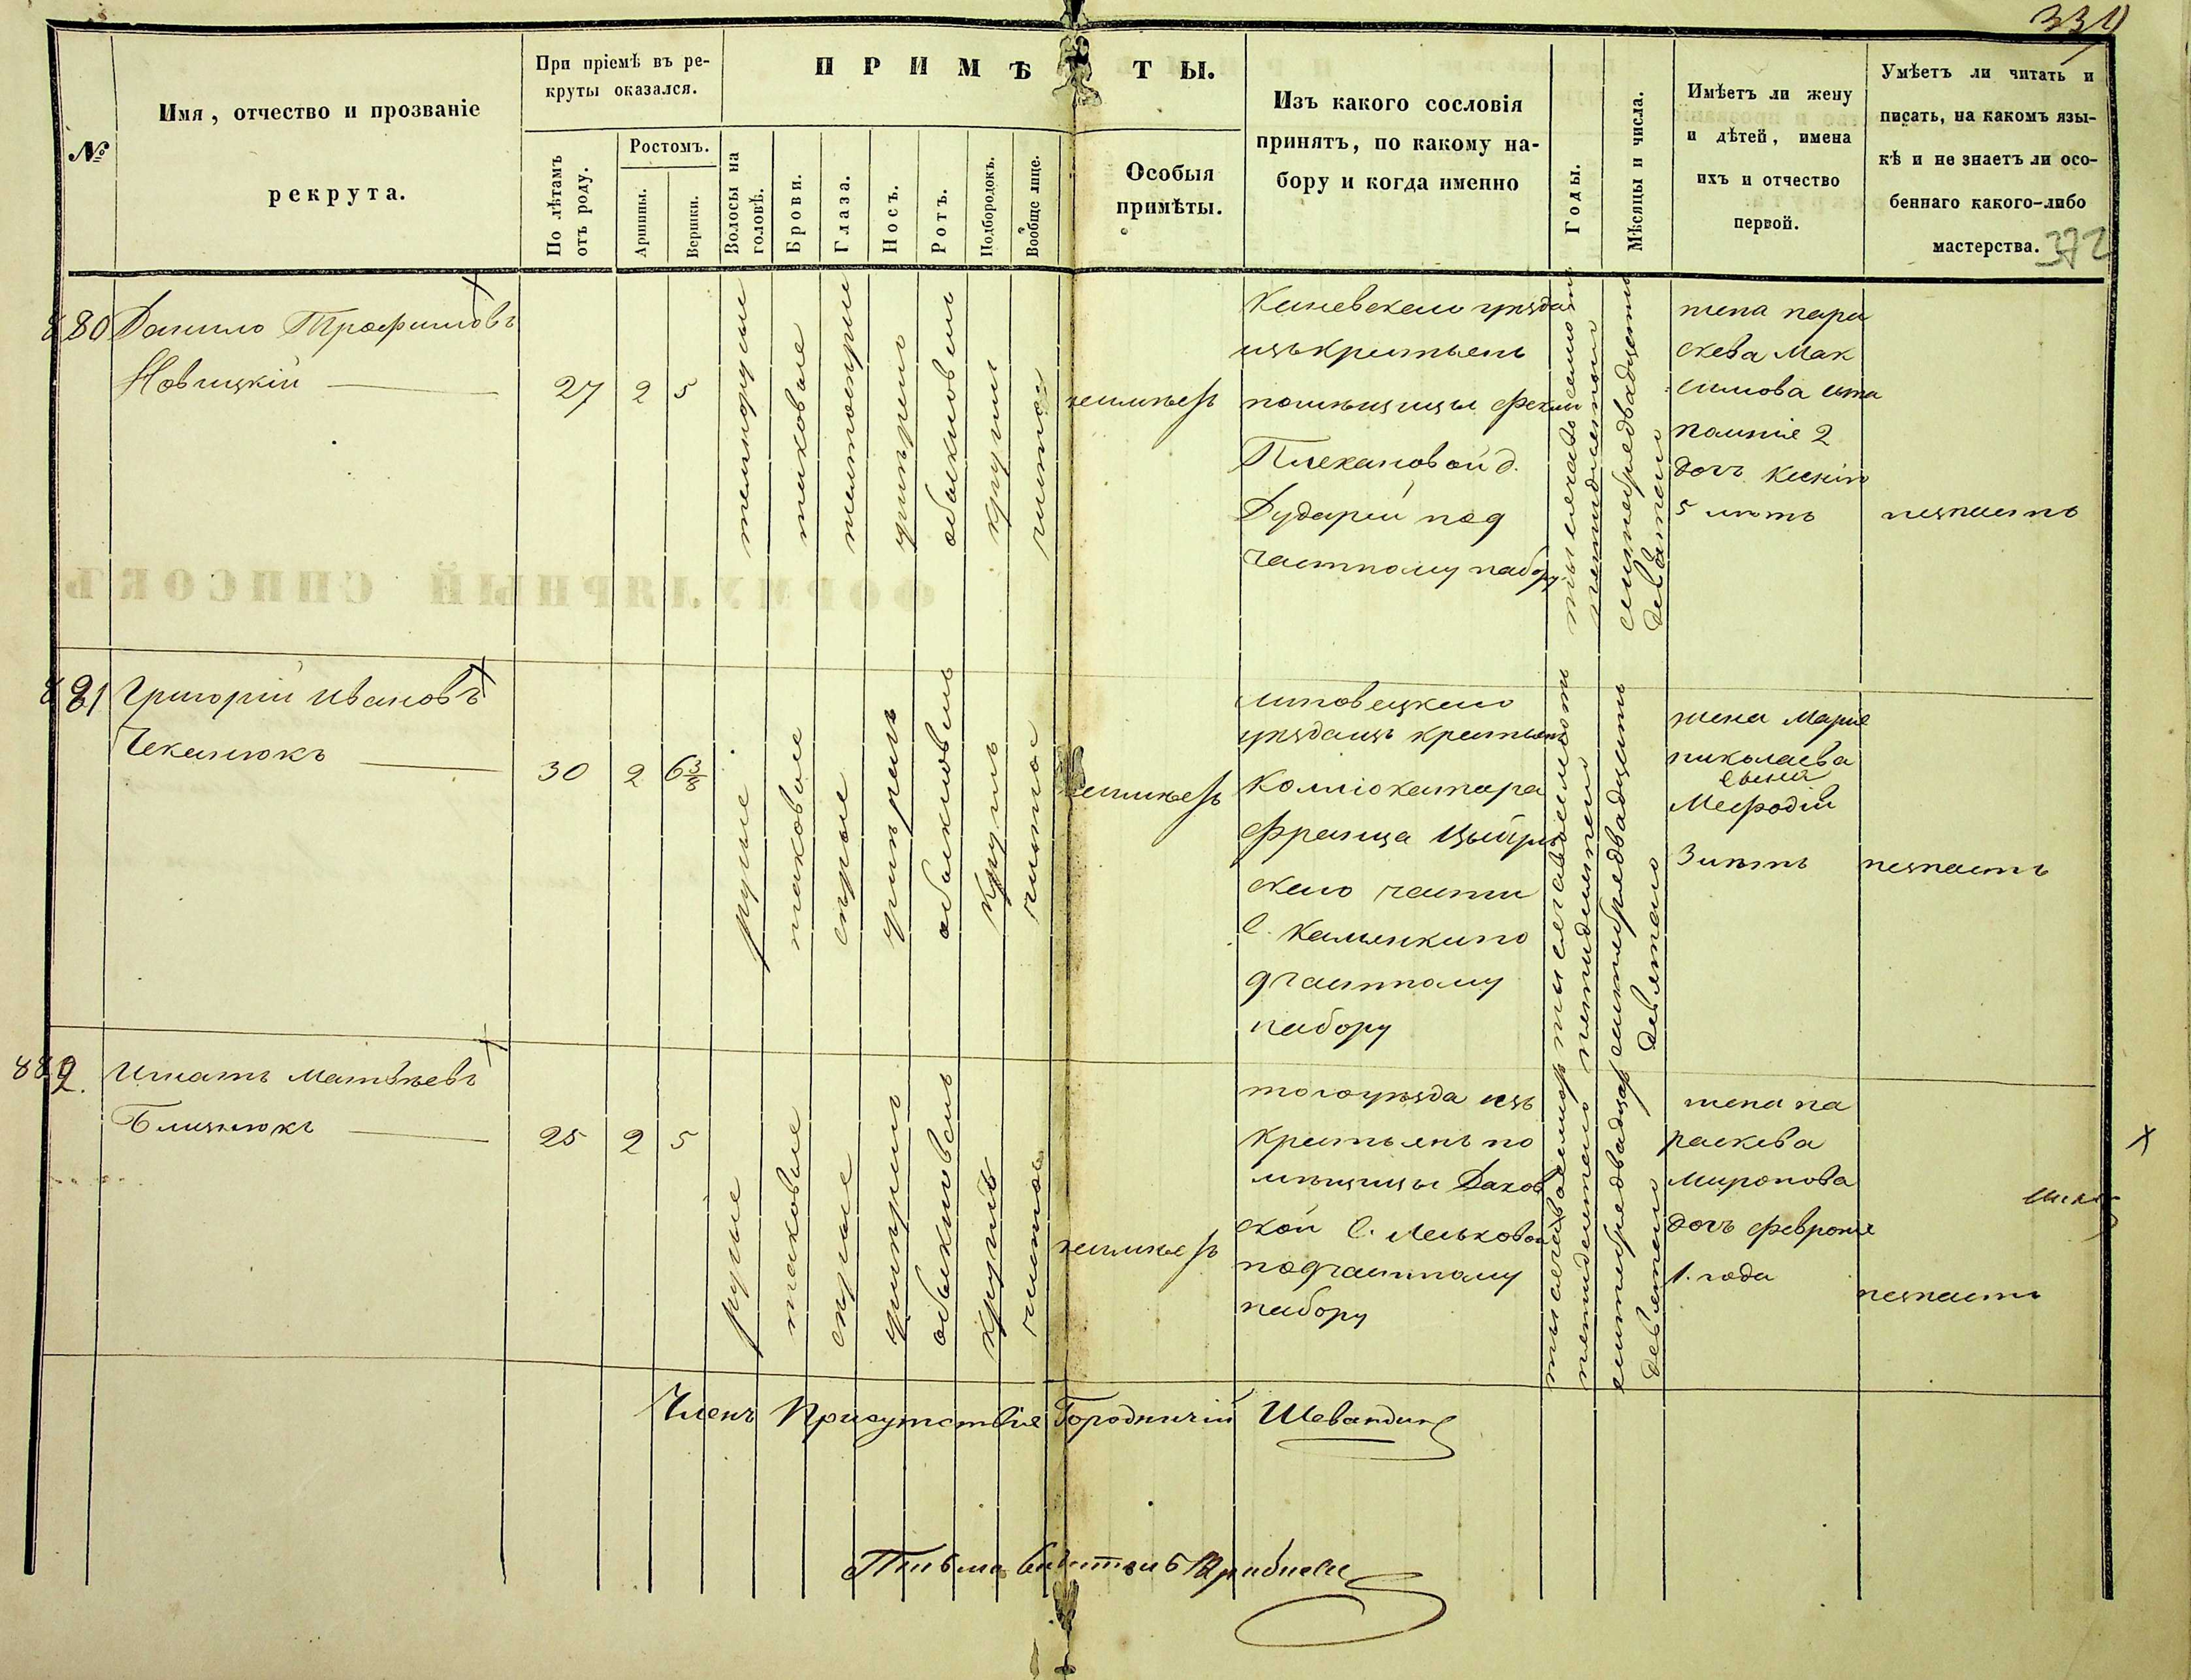 339
№
Имя, отчество и прозваніе
рекрута.
При пріемѣ въ ре-
круты оказался.
По лѣтамъ
отъ роду.
Ростомъ.
Аршины.
Вершки.
ПРИМѢТЫ.
Волосы на
головѣ.
Брови.
Глаза.
Носъ.
Ротъ.
Подбородокъ.
Вообще лице.
Особыя
примѣты.
Изъ какого сословія
принятъ, по какому на-
бору и когда именно
Годы.
Мѣсяцы и числа.
Имѣетъ ли жену
и дѣтей, имена
ихъ и отчество
первой.
Умѣетъ ли читать и
писать, на какомъ язы-
кѣ и не знаетъ ли осо-
беннаго какого-либо
мастерства.
372
880
Данило Трофимовъ
Новицкій
27
2
5
темнорусые
таковые
умѣренъ
обыкновенъ
круглый
чистое
неимѣетъ
Каневскаго уѣзда
изъкрестьянъ
помѣщицы Феклы
Плехановой д.
Дударей под
частному набору
тысяча восемьсотъ
пятидесятаго
сентября двадцать
девятаго
жена пара
скева Мак
симова
дочь Ксенія
5 лѣтъ
незнаетъ
881
Григорій Ивановъ
Чеканюкъ
30
2
6 3/8
русые
таковые
сѣрые
умѣренъ
обыкновенъ
круглъ
чистое
неимѣетъ
Липовецкаго
уѣздаизъ крестьянъ
Франца
скаго части
с. Каменкипо
дчастному
набору
тысяча восемьсотъ
пятидесятаго
сентября двадцать
девятаго
жена Марія
николаева
сынъ
Мефодій
3 лѣтъ
незнаетъ
882.
Игнатъ Матвѣевъ
Близнюкъ
25
2
5
русые
таковые
сѣрые
умѣренъ
обыкновенъ
круглъ
чистое
неимѣетъ
тогоуѣзда изъ
крестьянъ по
мѣщицы Дахов
ской с.
подчастному
набору
тысяча восемьсотъ
пятидесятаго
сентября двадцать
девятаго
жена па
раскева
Миронова
дочь Февронія
1. года
незнаетъ
Членъ Присутствія Городничій
ФОРМУЛЯРНЫЙ СПИСОКЪ